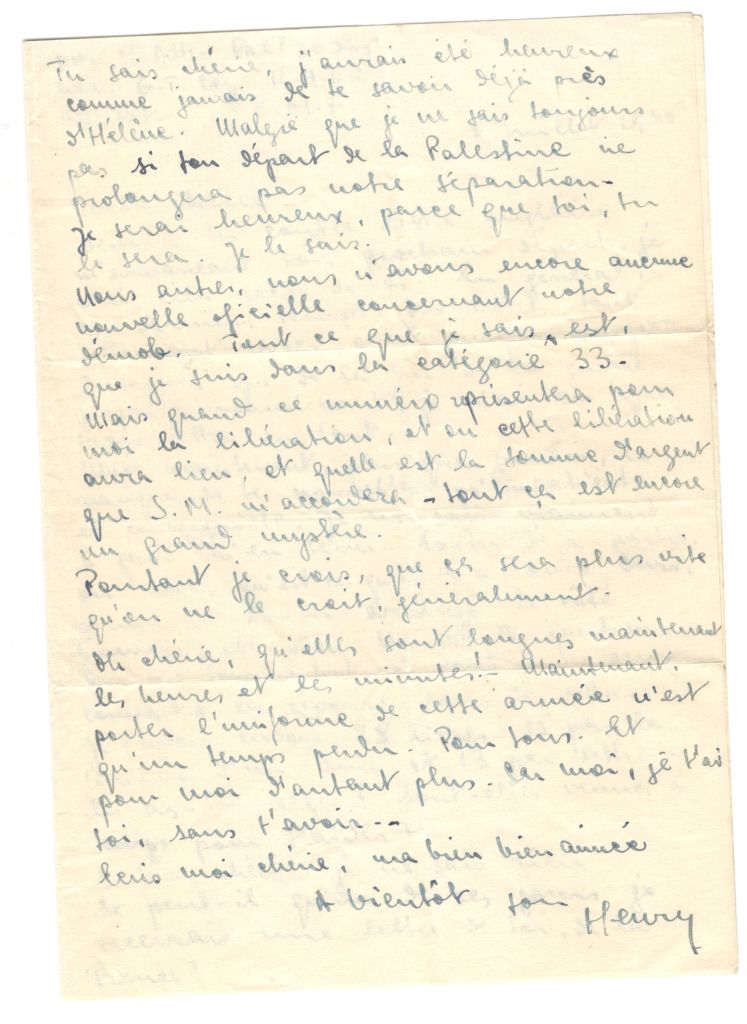 Tu sais chérie, j'aurais été heureux
comme jamais de te savoir déjà près
d'Hélène. Malgré que je ne sais toujours
pas si ton départ de la Palestine ne
prolongera pas notre séparation -
Je serai heureux, parce que toi, tu
le sera. Je le sais.
Nous autres, nous n'avons encore aucune
nouvelle oficielle concernant notre
démob. Tout ce que je sais, est,
que je suis dans la catégorie 33 -
Mais quand ce numéro représentera pour
moi la libération, et où cette libération
aura lieu, et quelle est la somme d'argent
que S.M. m'accordera - tout ça est encore
un grand mystère.
Pourtant je crois, que ça sera plus vite
qu'on ne le croit, généralement -
Oh chérie, qu'elles sont longues maintenant
les heures et les minutes! - Maintenant,
porter l'uniforme de cette armée n'est
qu'un temps perdu - Pour tous. Et
pour moi d'autant plus - Car moi, je t'ai
toi sans t'avoir - -
Ecris moi chérie, ma bien bien aimée
A bientôt ton
Henry